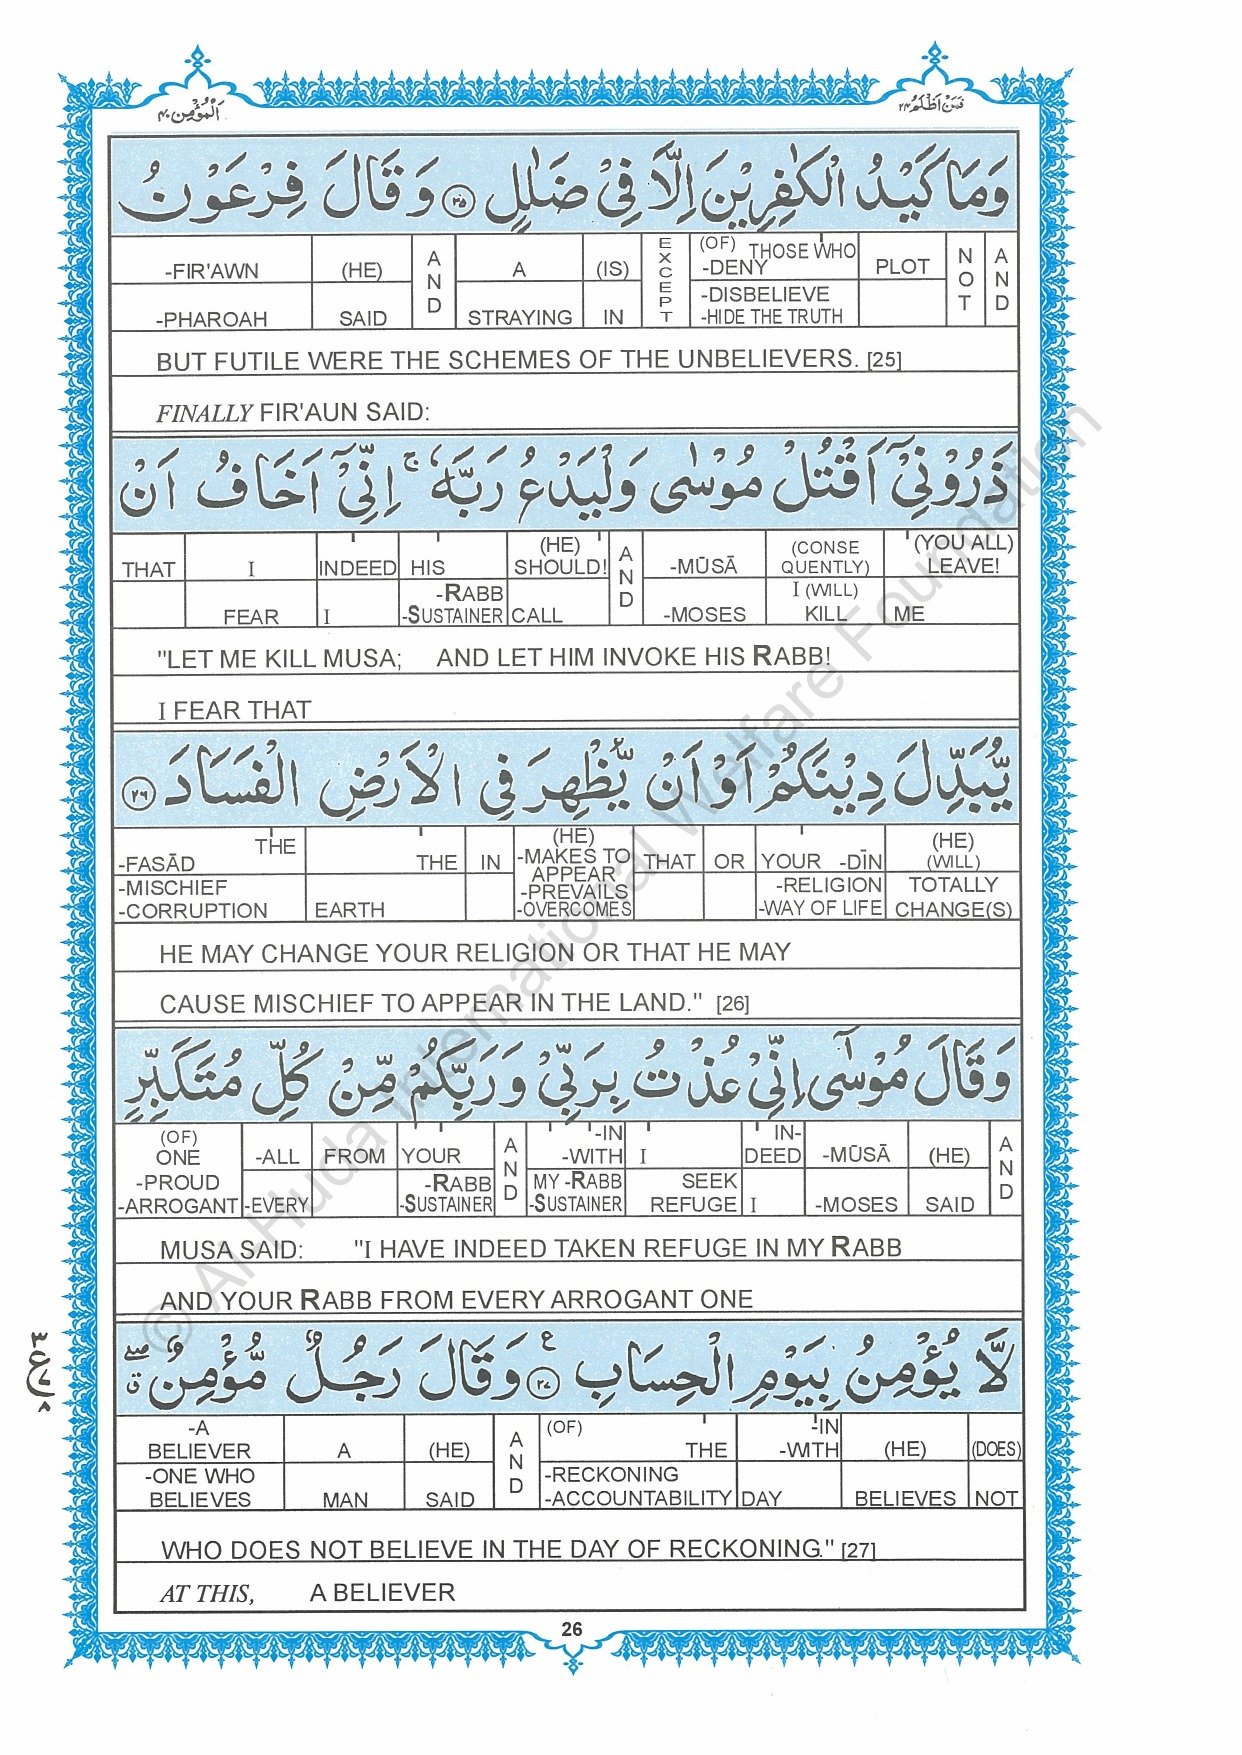 اَلْمُؤْمِن ٤٠
فَمَنْ اَظْلَمُ ٢٤
وَمَا كَيْدُ الْكٰفِرِيْنَ اِلَّا فِيْ ضَلٰلٍ ۝٢٥ وَقَالَ فِرْعَوْنُ
-FIR'AWN (HE) AND A (IS) EXCEPT (OF) THOSE WHO -DENY PLOT NOT AND
-PHAROAH SAID STRAYING IN -DISBELIEVE -HIDE THE TRUTH
BUT FUTILE WERE THE SCHEMES OF THE UNBELIEVERS. [25]
FINALLY FIR'AUN SAID:
ذَرُوْنِيْٓ اَقْتُلْ مُوْسٰى وَلْيَدْعُ رَبَّهٗ ۚ اِنِّيْٓ اَخَافُ اَنْ
THAT I INDEED HIS (HE) SHOULD! AND -MŪSĀ (CONSE QUENTLY) (YOU ALL) LEAVE!
FEAR I -RABB -SUSTAINER CALL -MOSES I (WILL) KILL ME
"LET ME KILL MUSA; AND LET HIM INVOKE HIS RABB!
I FEAR THAT
يُّبَدِّلَ دِيْنَكُمْ اَوْ اَنْ يُّظْهِرَ فِي الْاَرْضِ الْفَسَادَ ۝٢٦
-FASĀD THE THE IN (HE) -MAKES TO APPEAR THAT OR YOUR -DĪN (HE) (WILL)
-MISCHIEF -CORRUPTION EARTH -PREVAILS -OVERCOMES -RELIGION -WAY OF LIFE TOTALLY CHANGE(S)
HE MAY CHANGE YOUR RELIGION OR THAT HE MAY
CAUSE MISCHIEF TO APPEAR IN THE LAND." [26]
وَقَالَ مُوْسٰٓى اِنِّيْ عُذْتُ بِرَبِّيْ وَرَبِّكُمْ مِّنْ كُلِّ مُتَكَبِّرٍ
(OF) ONE -ALL FROM YOUR AND -IN -WITH I IN- DEED -MŪSĀ (HE) AND
-PROUD -ARROGANT -EVERY -RABB -SUSTAINER MY -RABB -SUSTAINER SEEK REFUGE I -MOSES SAID
MUSA SAID: "I HAVE INDEED TAKEN REFUGE IN MY RABB
AND YOUR RABB FROM EVERY ARROGANT ONE
لَّا يُؤْمِنُ بِيَوْمِ الْحِسَابِ ۝٢٧ ع وَقَالَ رَجُلٌ مُّؤْمِنٌ ۖ ق
٣ ع ٧ ٨
-A BELIEVER A (HE) AND (OF) THE -IN -WITH (HE) (DOES)
-ONE WHO BELIEVES MAN SAID -RECKONING -ACCOUNTABILITY DAY BELIEVES NOT
WHO DOES NOT BELIEVE IN THE DAY OF RECKONING." [27]
AT THIS, A BELIEVER
26
© Al-Huda International Welfare Foundation